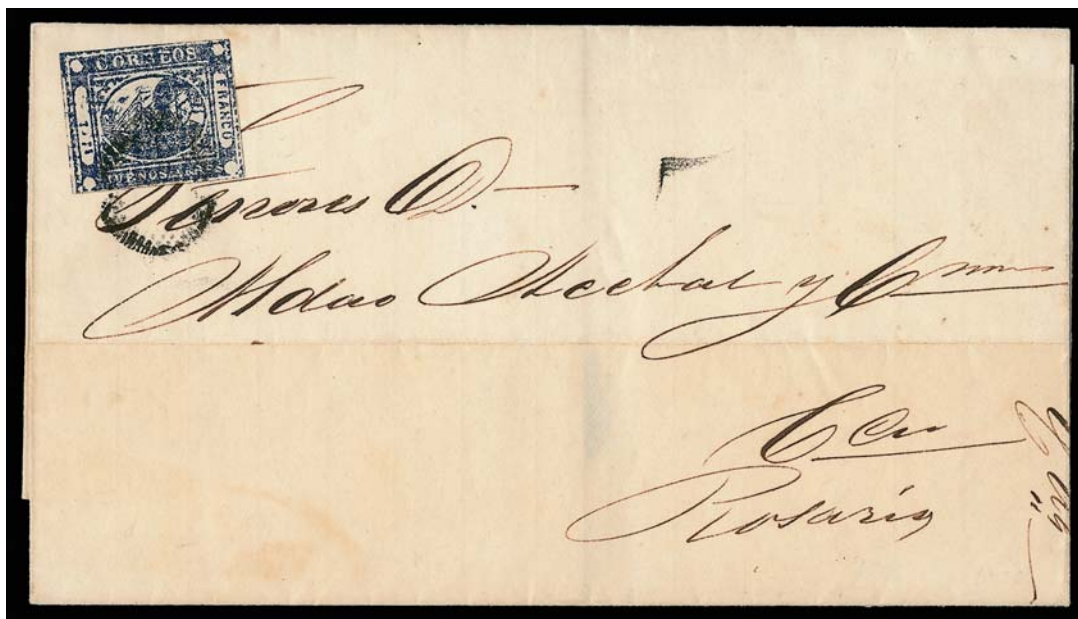 CORREOS
FRANCO
BUENOS AIRES
Señores D.
Aldao Acebal y
Rosario